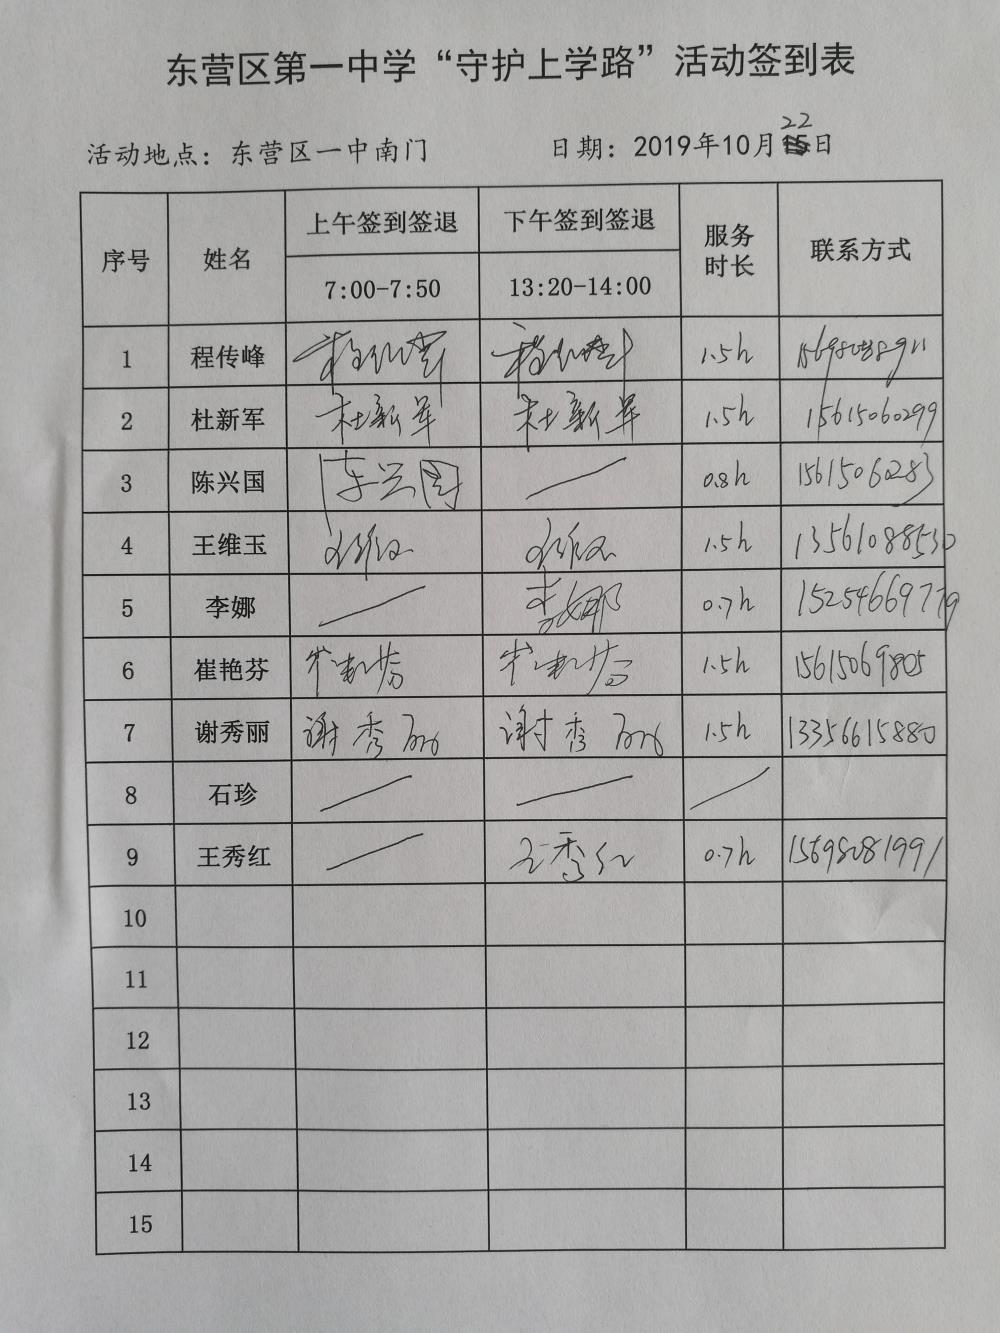 东营区第一中学“守护上学路”活动签到表
活动地点：东营区一中南门 日期：2019年10月22日
序号 姓名 上午签到签退 下午签到签退 服务时长 联系方式
7:00-7:50 13:20-14:00
1 程传峰 程传峰 程传峰 1.5h
2 杜新军 杜新军 杜新军 1.5h 15615060299
3 陈兴国 陈兴国 / 0.8h 15615060283
4 王维玉 王维玉 王维玉 1.5h 13561088530
5 李娜 / 李娜 0.7h 15254669779
6 崔艳芬 崔艳芬 崔艳芬 1.5h 15615069805
7 谢秀丽 谢秀丽 谢秀丽 1.5h 13356615880
8 石珍 / / /
9 王秀红 / 王秀红 0.7h 15698081991
10
11
12
13
14
15